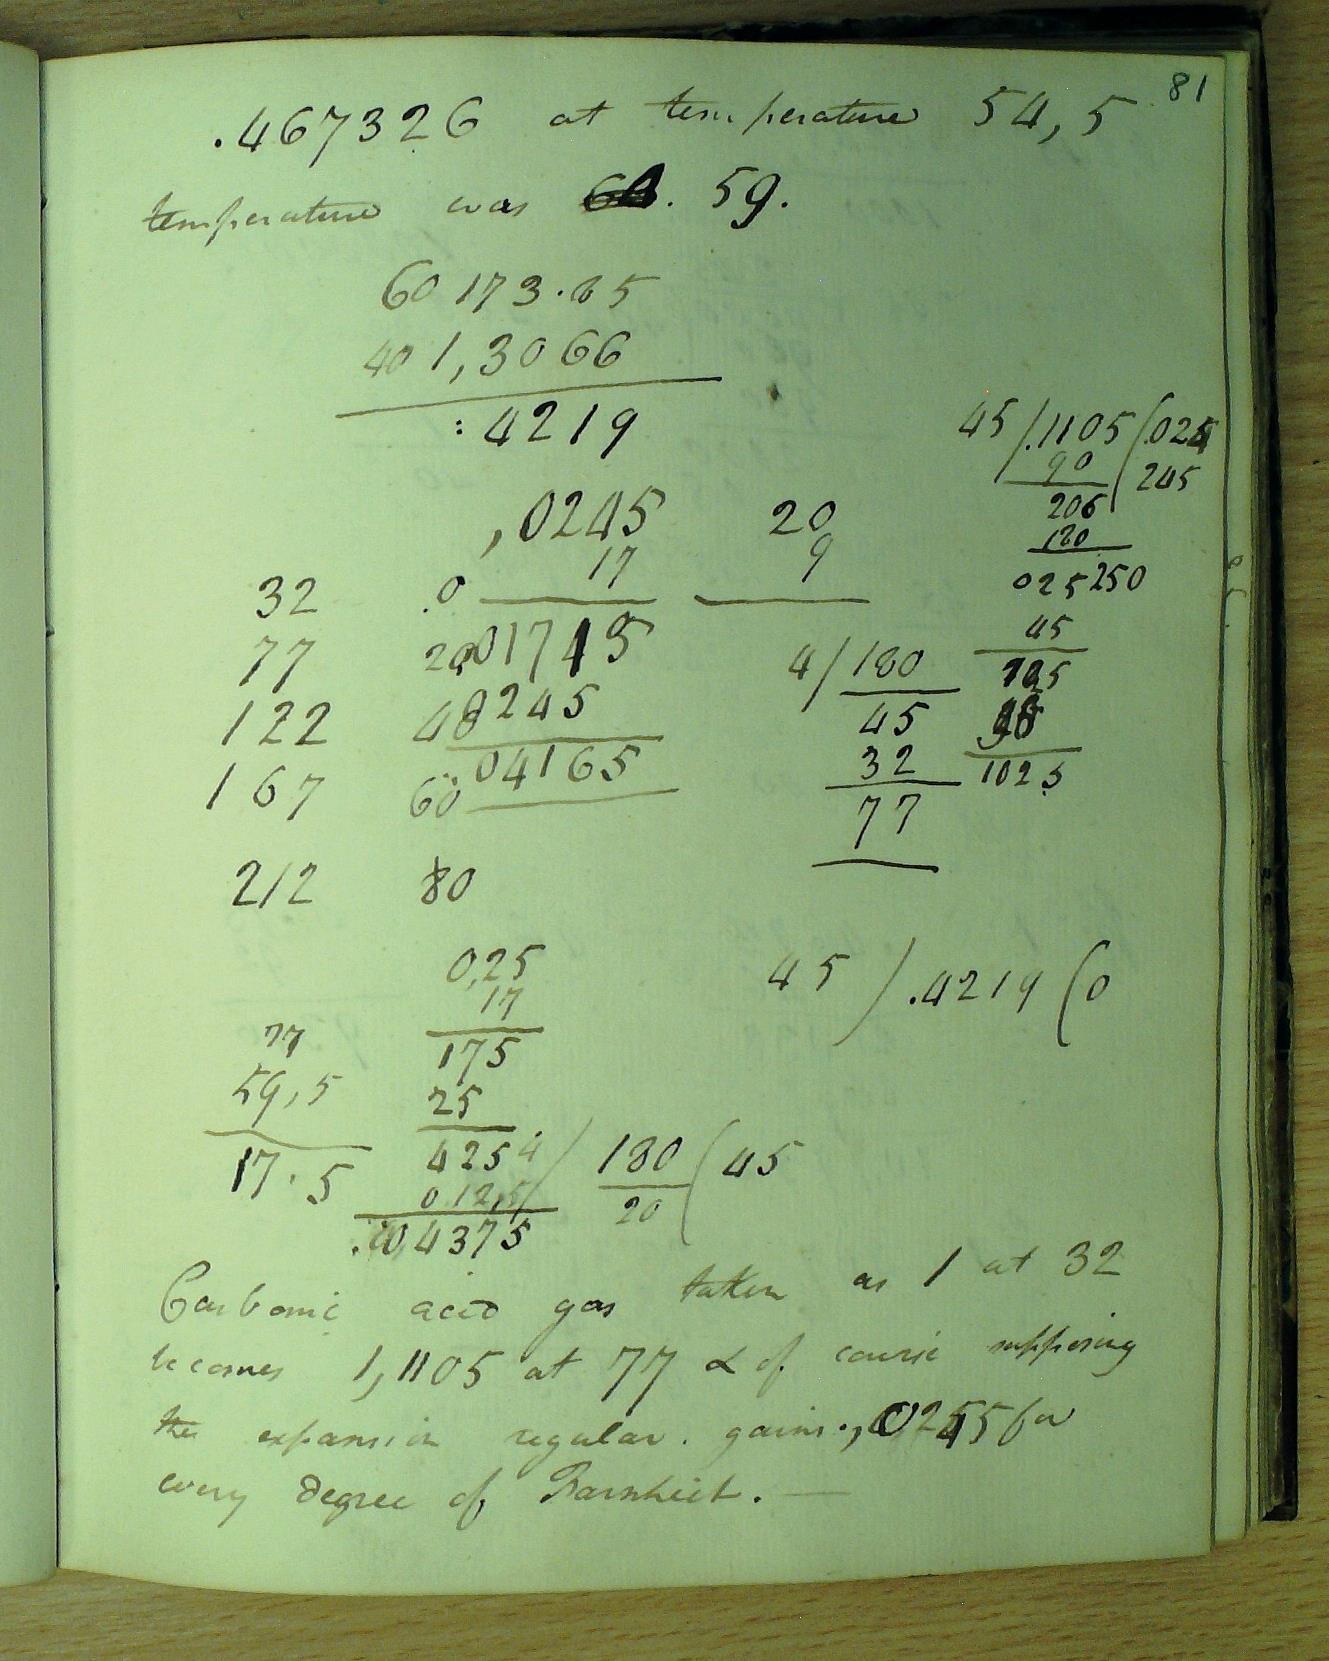 81
.467326 at temperature 54,5
temperature was 59.
60 173.85
40 1,3066
:4219
45/.1105(.024
90 245
206
180
025250
45
1025
,0245 20
17 9
32 .0
77 20 01715
122 40 0245
167 60 04165
212 80
4/180
45
32
77
0,25
17
175
25
425
012,5
4375
45 / .4219 (0
77
59,5
17.5
4/180(45
20
Carbonic acid gas taken as 1 at 32
becomes 1,1105 at 77 & of course supposing
the expansion regular. gains ,0245 for
every degree of Farnheit. —